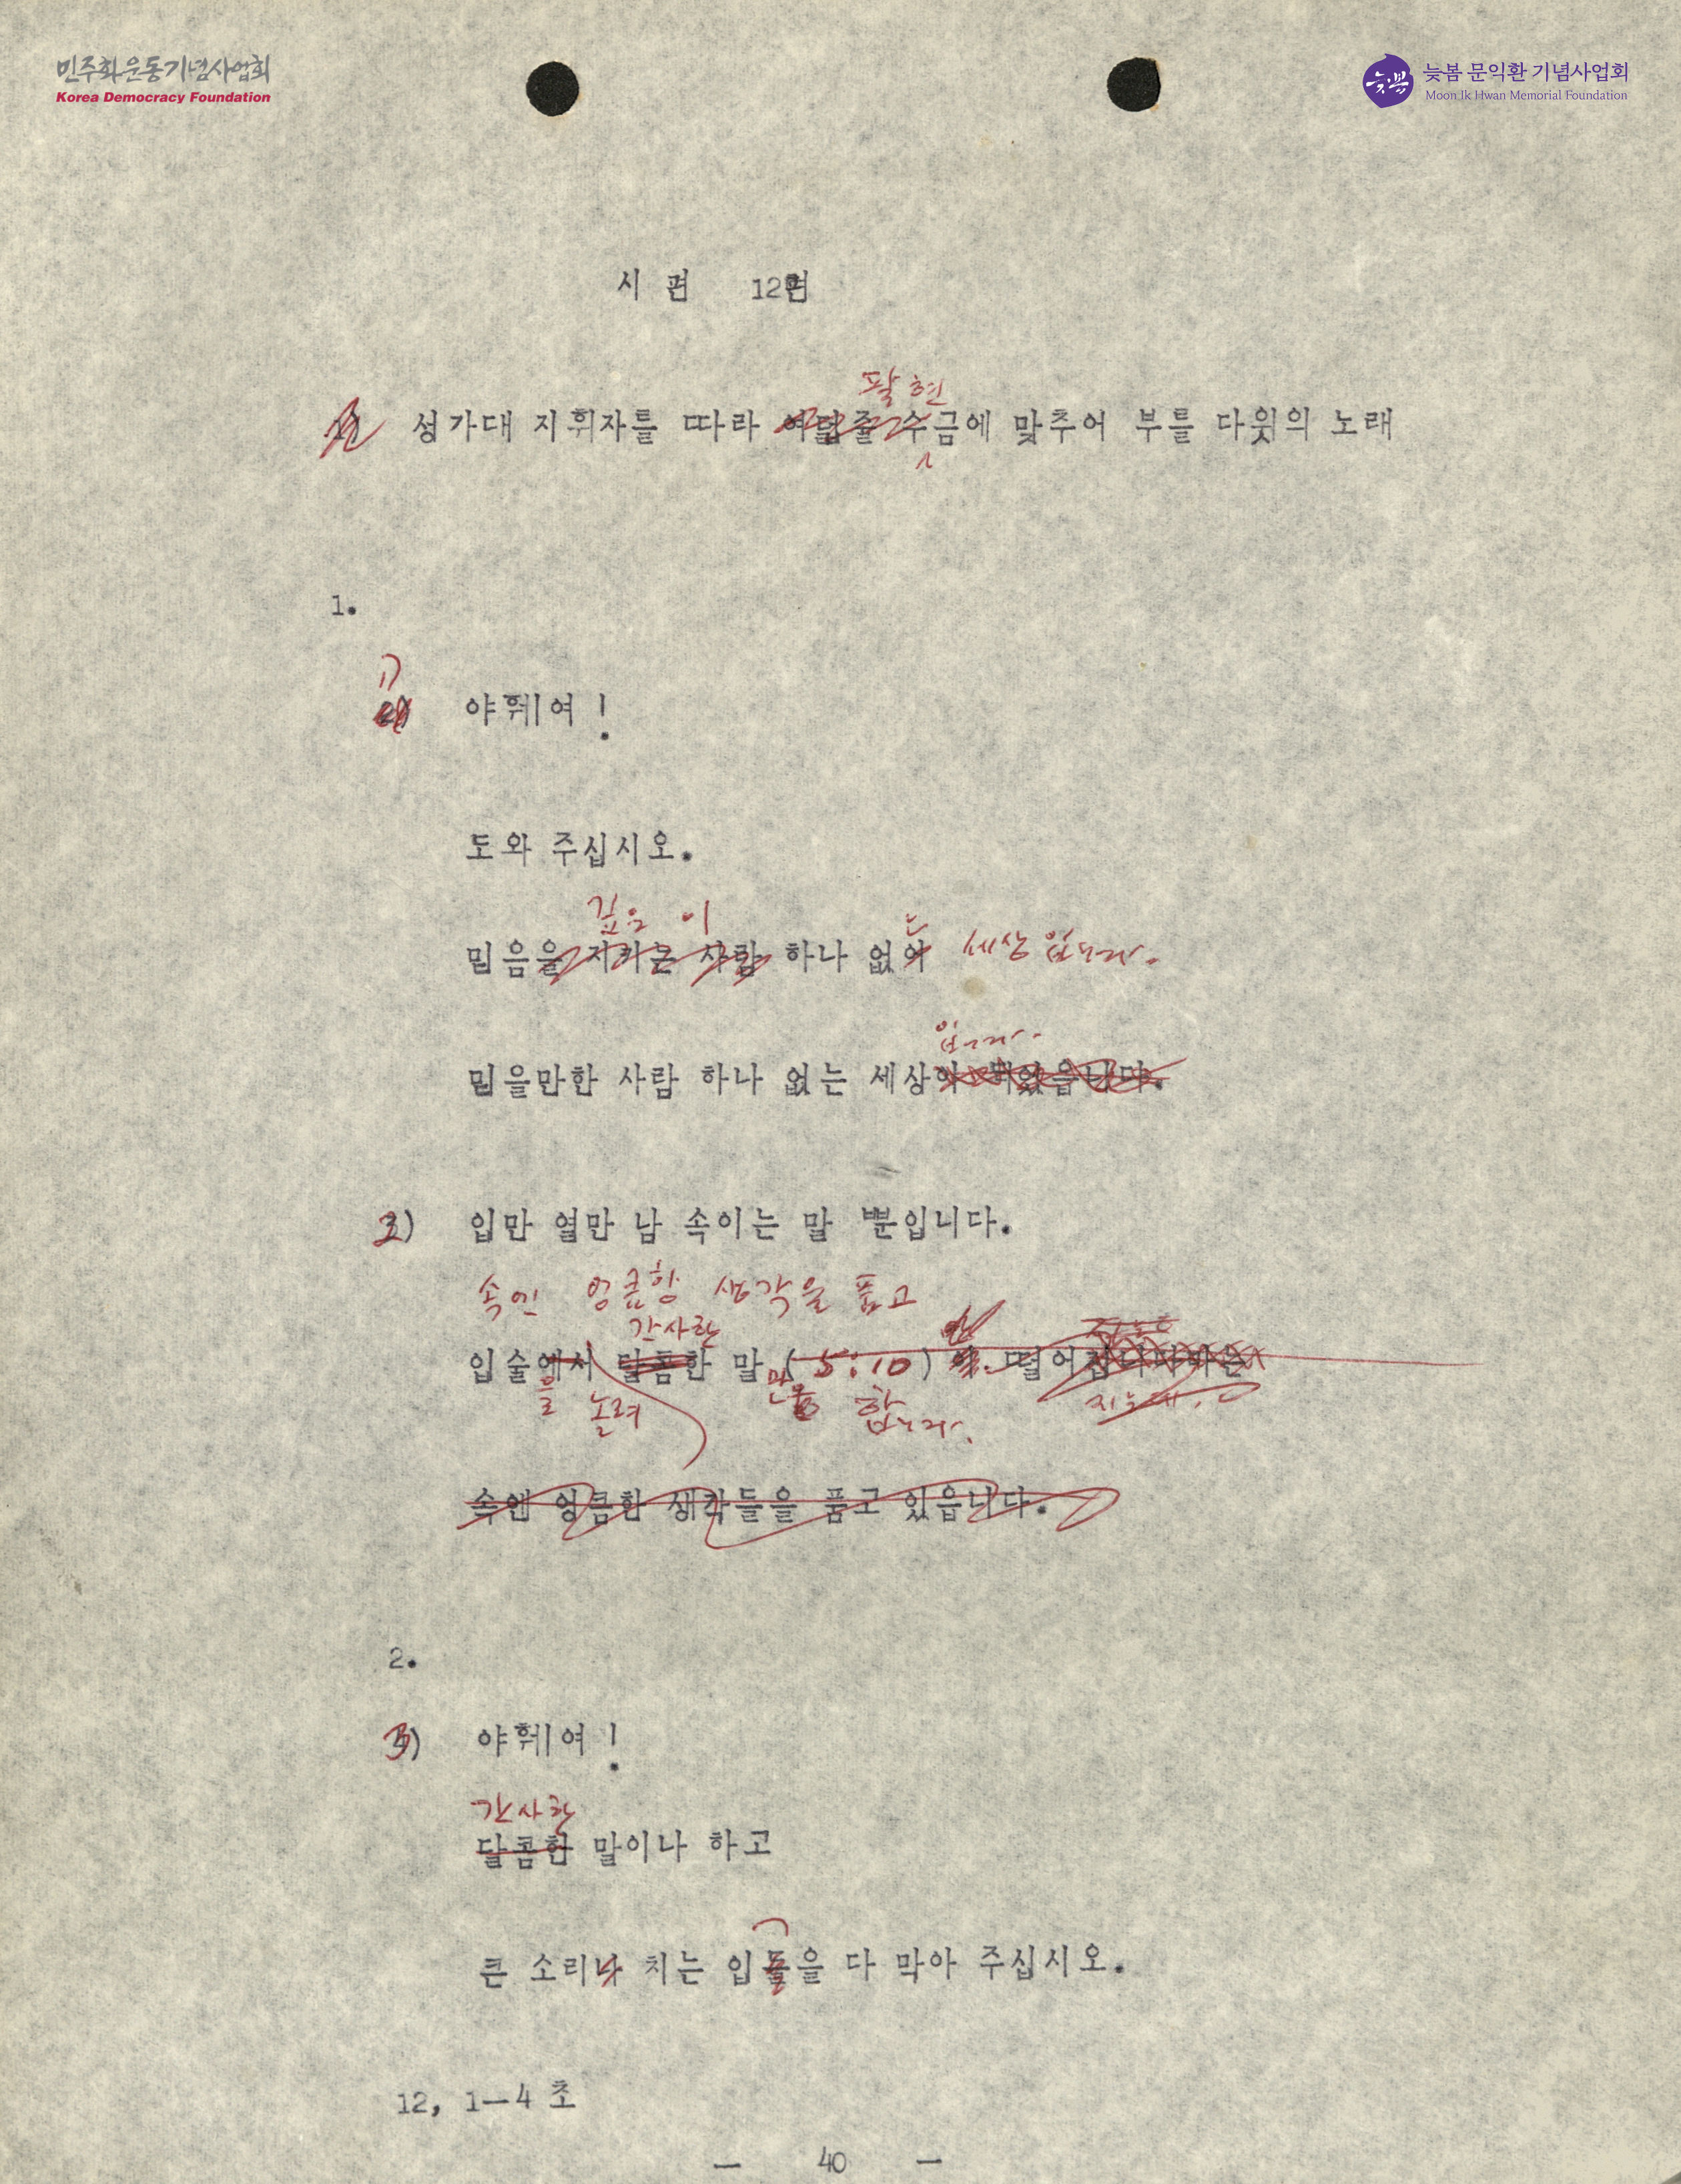 민주화운동기념사업회
Korea Democracy Foundation
늦봄
늦봄 문익환 기념사업회
Moon Ik Hwan Memorial Foundation
시 편 12편
팔현
성가대 지휘자를 따라 여덟줄 수금에 맞추어 부를 다윗의 노래
1.
1)
2) 야훼여 !
도와 주십시오.
깊은 이 는 세상입니다.
믿음을 지키는 사람 하나 없어
입니다.
믿을만한 사람 하나 없는 세상이 되었읍니다.
2) 입만 열만 남 속이는 말 뿐입니다.
속엔 엉큼한 생각을 품고
간사한
입술에서 달콤한 말 (5:10) 떨어집니다마는
을 놀려 만을 합니다.
속엔 엉큼한 생각들을 품고 있읍니다.
2.
3) 야훼여 !
간사한
달콤한 말이나 하고
큰 소리나 치는 입들을 다 막아 주십시오.
12, 1—4 초
— 40 —